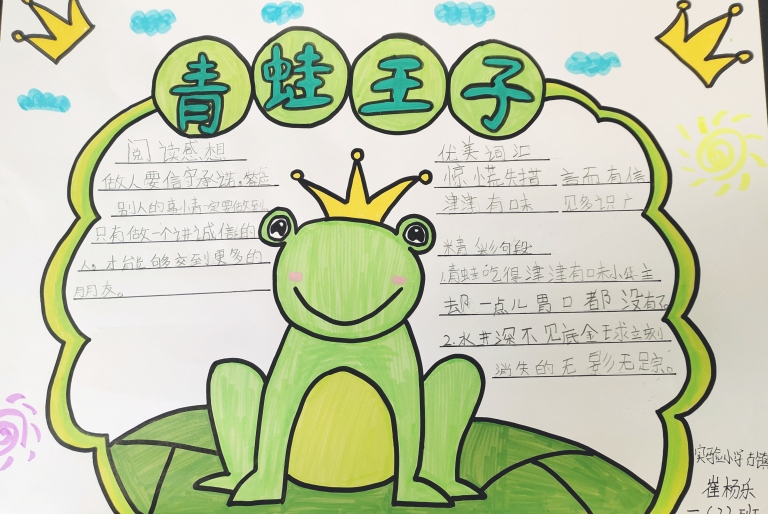 青蛙王子
阅读感想
做人要信守承诺。答应
别人的事情一定要做到
只有做一个讲诚信的
人。才能够交到更多的
朋友。
优美词汇
惊慌失措 言而有信
津津有味 见多识广
精彩句段
1.青蛙吃得津津有味小公主
却一点儿胃口都没有
2.水井深不见底金球立刻
消失的无影无踪。
实验小学古镇
崔杨乐